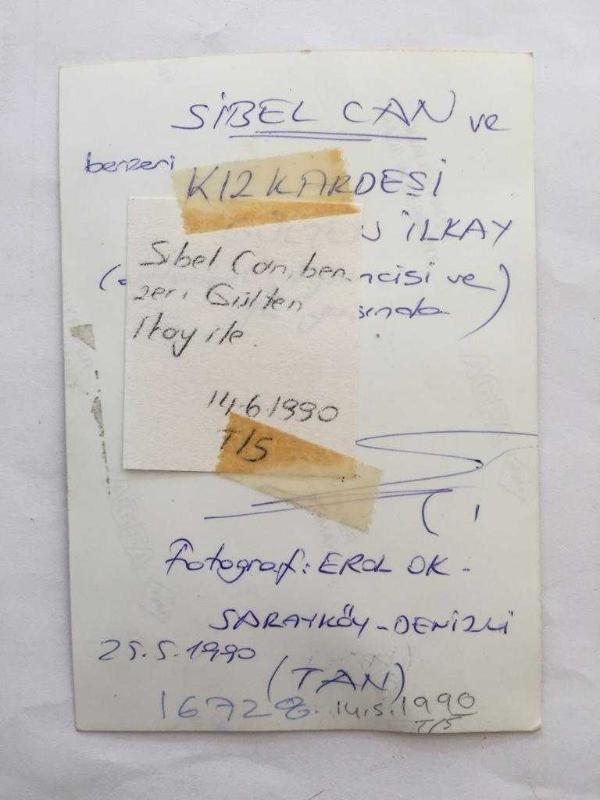 SİBEL CAN ve
benzeri
KIZ KARDEŞİ
İLKAY
ncisi ve
sında
Sibel Can, ben
zeri Gülten
İlkay ile
14.6.1990
T/S
Fotoğraf: EROL OK -
SARAYKÖY - DENİZLİ
25.5.1990
(TAN)
16728
14.5.1990
T/S